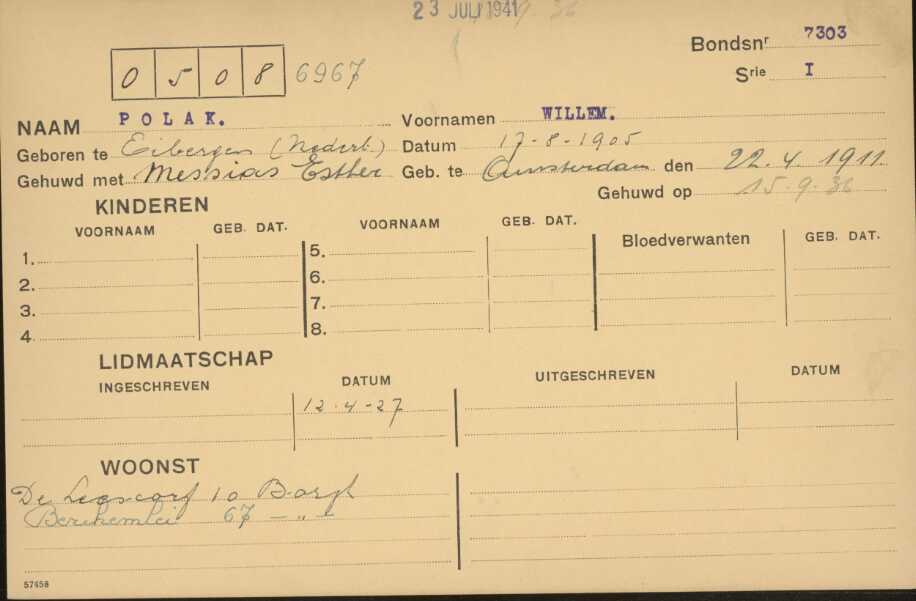 23 JULI 1941 9.36
Bondsnr 7303
0 5 0 8 6967
Srie I
NAAM POLAK. Voornamen WILLEM.
Geboren te Eibergen (Nederl.) Datum 17-8-1905
Gehuwd met Messias Esther Geb. te Amsterdam den 22.4.1911
Gehuwd op 15.9.36
KINDEREN
VOORNAAM GEB. DAT. VOORNAAM GEB. DAT. Bloedverwanten GEB. DAT.
1. 5.
2. 6.
3. 7.
4. 8.
LIDMAATSCHAP
INGESCHREVEN DATUM UITGESCHREVEN DATUM
12-4-27
WOONST
De 10 Borgh
Berchemlei 67 - „ -
57458